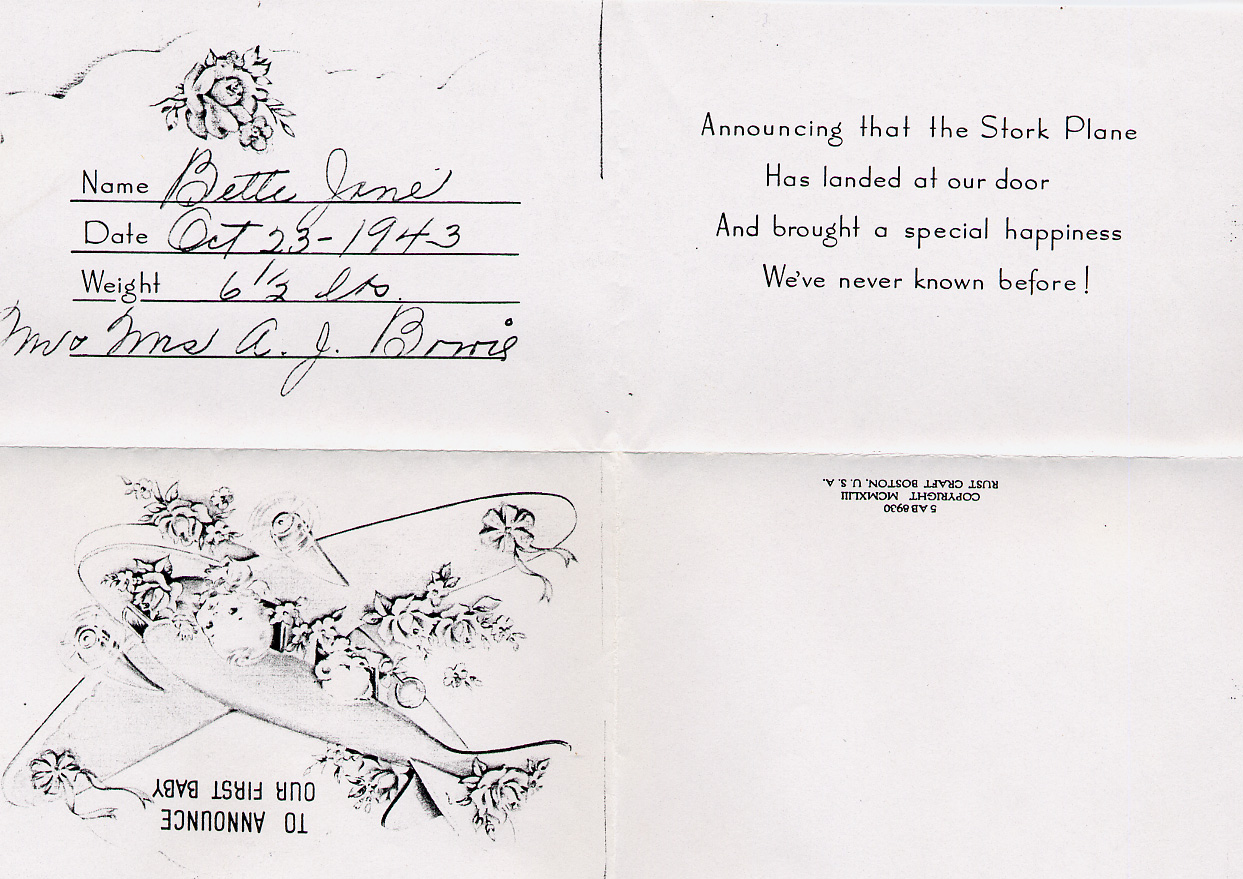 Name Bette Jane
Date Oct 23-1943
Weight 6 1/2 lbs.
Mr & Mrs A. J. Bowie
Announcing that the Stork Plane
Has landed at our door
And brought a special happiness
We've never known before!
TO ANNOUNCE
OUR FIRST BABY
5 AB 8930
COPYRIGHT MCMXLIII
RUST CRAFT BOSTON, U. S. A.